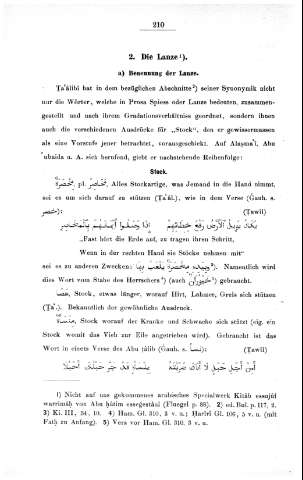 210
2. Die Lanze ¹).
a) Benennung der Lanze.
Ṯaʿâlibî hat in dem bezüglichen Abschnitte ²) seiner Synonymik nicht
nur die Wörter, welche in Prosa Spiess oder Lanze bedeuten, zusammen-
gestellt und nach ihrem Gradationsverhältnisse geordnet, sondern ihnen
auch die verschiedenen Ausdrücke für „Stock", den er gewissermassen
als eine Vorstufe jener betrachtet, vorausgeschickt. Auf Alaṣmaʿî, Abu
ʿubaida u. A. sich berufend, giebt er nachstehende Reihenfolge:
Stock.
مخصرة, pl. مخاصر, Alles Stockartige, was Jemand in die Hand nimmt,
sei es um sich darauf zu stützen (Ṯaʿâl.), wie in dem Verse (Gauh. s.
خصر): (Ṭawîl)
يكاد يزيل الارض وقع خطابهم اذا وصلوا ايمانهم بالمخاصر
„Fast hört die Erde auf, zu tragen ihren Schritt,
Wenn in der rechten Hand sie Stöcke nehmen mit"
sei es zu anderen Zwecken: وبيده مخصرة يلعب بها ³). Namentlich wird
dies Wort vom Stabe des Herrschers ⁴) (auch خيزران ⁵) gebraucht.
عصا, Stock, etwas länger, worauf Hirt, Lahmer, Greis sich stützen
(Ṯaʿ.). Bekanntlich der gewöhnliche Ausdruck.
منسأة, Stock worauf der Kranke und Schwache sich stützt (eig. ein
Stock womit das Vieh zur Eile angetrieben wird). Gebraucht ist das
Wort in einem Verse des Abu ṭâlib (Gauh. s. نسأ): (Ṭawîl)
1) Nicht auf uns gekommenes arabisches Specialwerk Kitâb essujûf
warrimâḥ von Abu ḥâtim essegestânî (Fluegel p. 88). 2) ed. Bul. p. 117, 2.
3) Ki. III, 34, 10. 4) Ham. Gl. 310, 3 v. u.; Ḥarîrî Gl. 106, 5 v. u. (mit
Fatḥ zu Anfang). 5) Vers vor Ham. Gl. 310. 3 v. u.